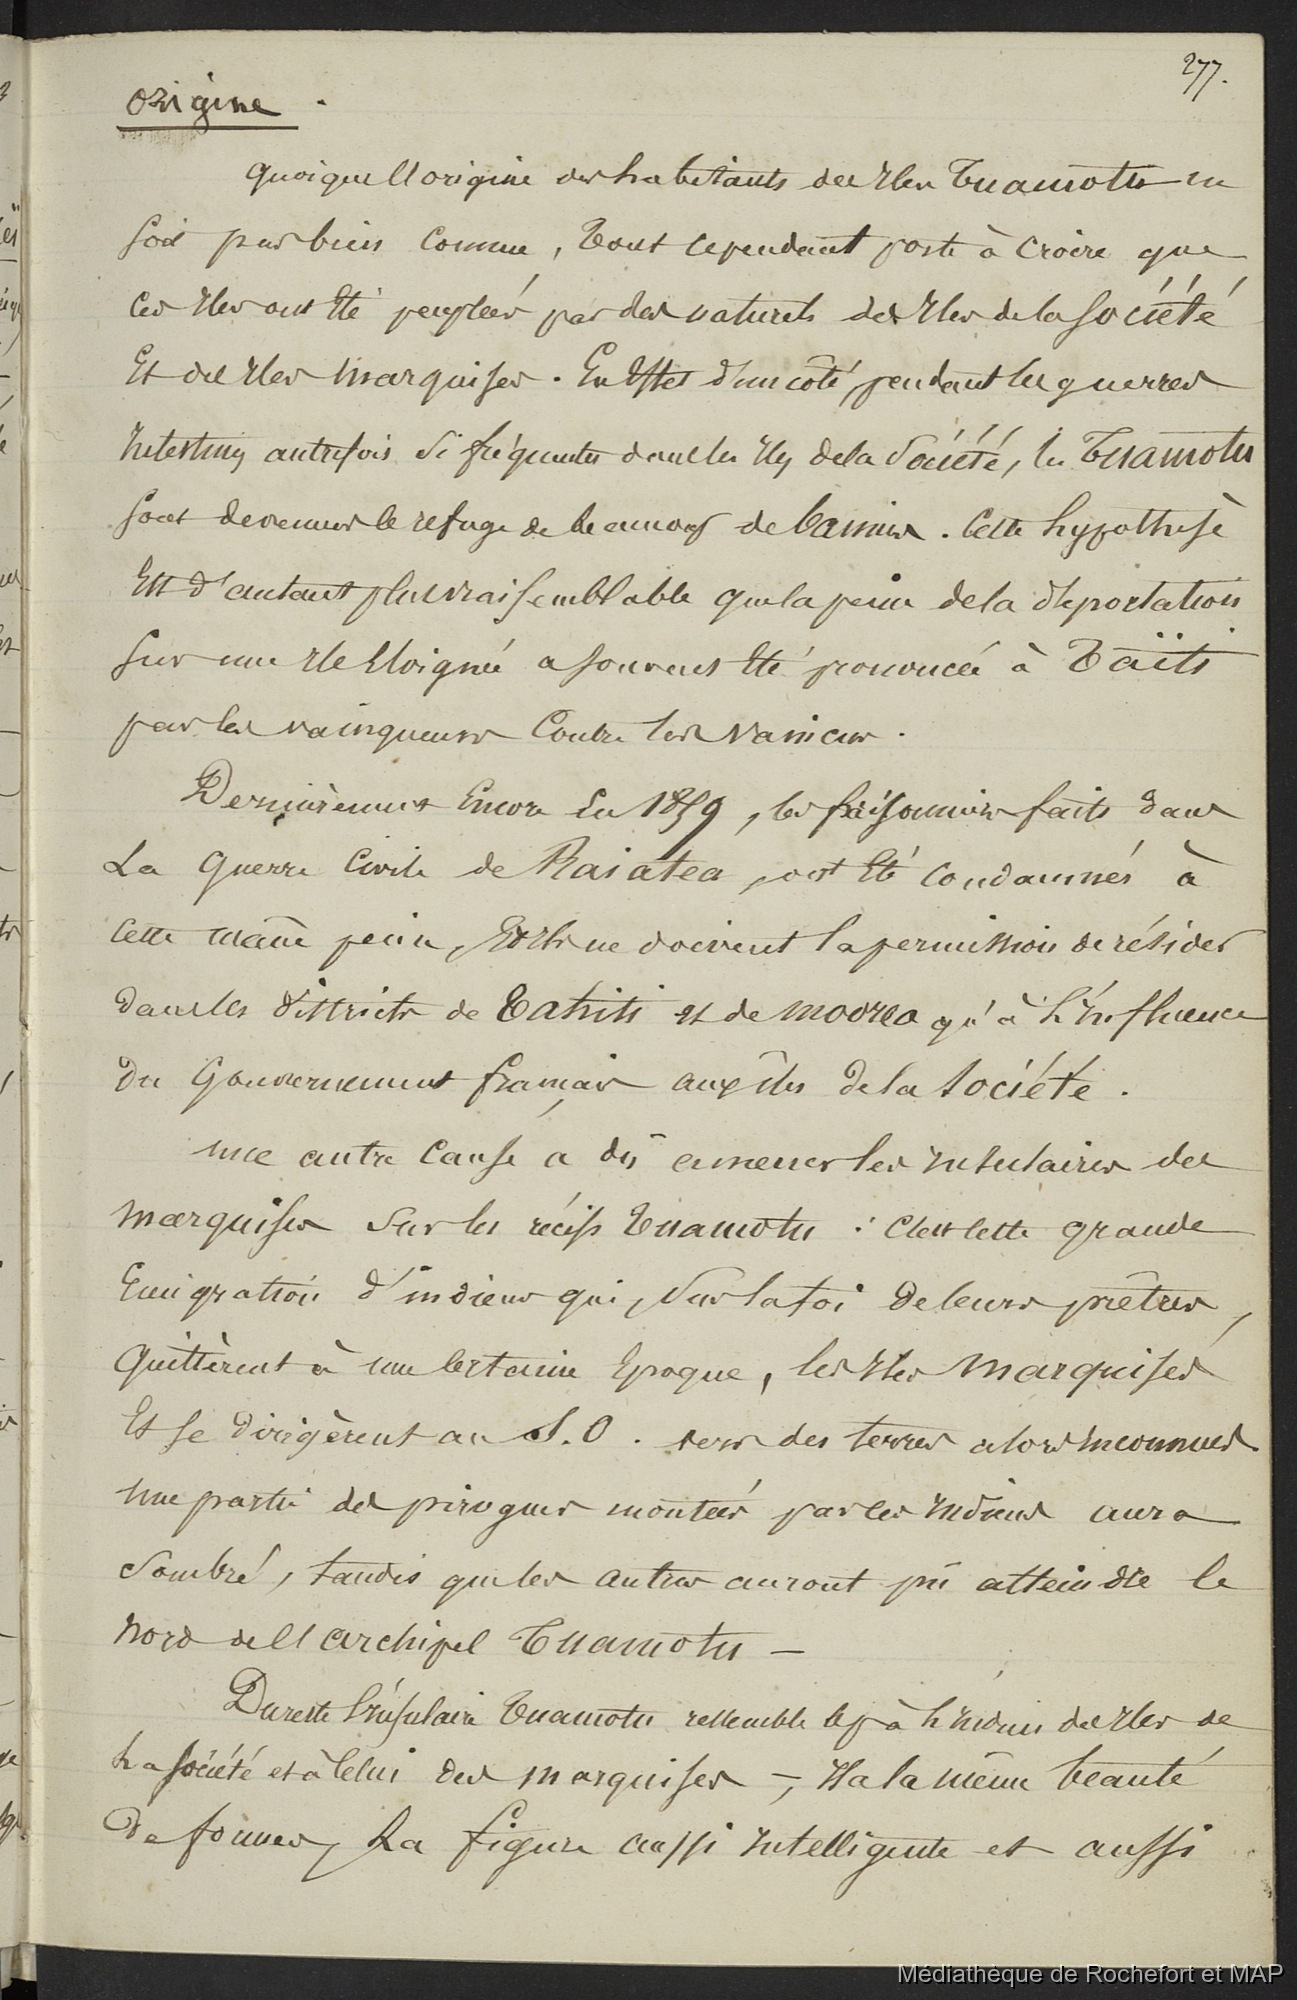 277.
Origine.
Quoique l'origine des habitants des Iles Tuamotu ne
soit pas bien connue, tout cependant porte à croire que
ces Iles ont été peuplées par des naturels des Iles de la Société
Et des Iles Marquises. En Effet d'un coté, pendant les guerres
Intestines autrefois si fréquentes dans les Iles de la Société, les Tuamotu
sont devenues le refuge de beaucoup de vaincus. Cette hypothèse
Est d'autant plus vraisemblable que la peine de la déportation
sur une Ile Eloignée a souvent été prononcée à Taïti
par les vainqueurs Contre les vaincus.
Dernièrement Encore En 1859, les prisonniers faits dans
La Guerre Civile de Raiatea, ont Eté condamnés à
cette même peine, Et Ils ne doivent la permission de résider
dans les districts de Tahiti et de Moorea qu'à l'Influence
du Gouvernement français aux îles de la Société.
Une autre Cause a dû amener les Insulaires des
Marquises sur les récifs Tuamotu : C'est cette grande
Emigration d'indiens qui, sur la foi de leurs prêtres,
Quittèrent à une certaine Epoque, les Iles Marquises
Et se dirigèrent au S.O. vers des terres alors Inconnues.
Une partie des pirogues montées par ces Indiens aura
sombré, tandis que les autres auront pû atteindre le
Nord de l'archipel Tuamotu —
Du reste l'Insulaire Tuamotu ressemble bcp à l'Indien des Iles de
La Société et à Celui des Marquises —, Il a la même beauté
De formes, La figure aussi Intelligente et aussi
Médiathèque de Rochefort et MAP